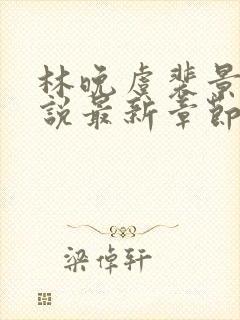 林晚虞裴景
說最新章節
梁倬轩